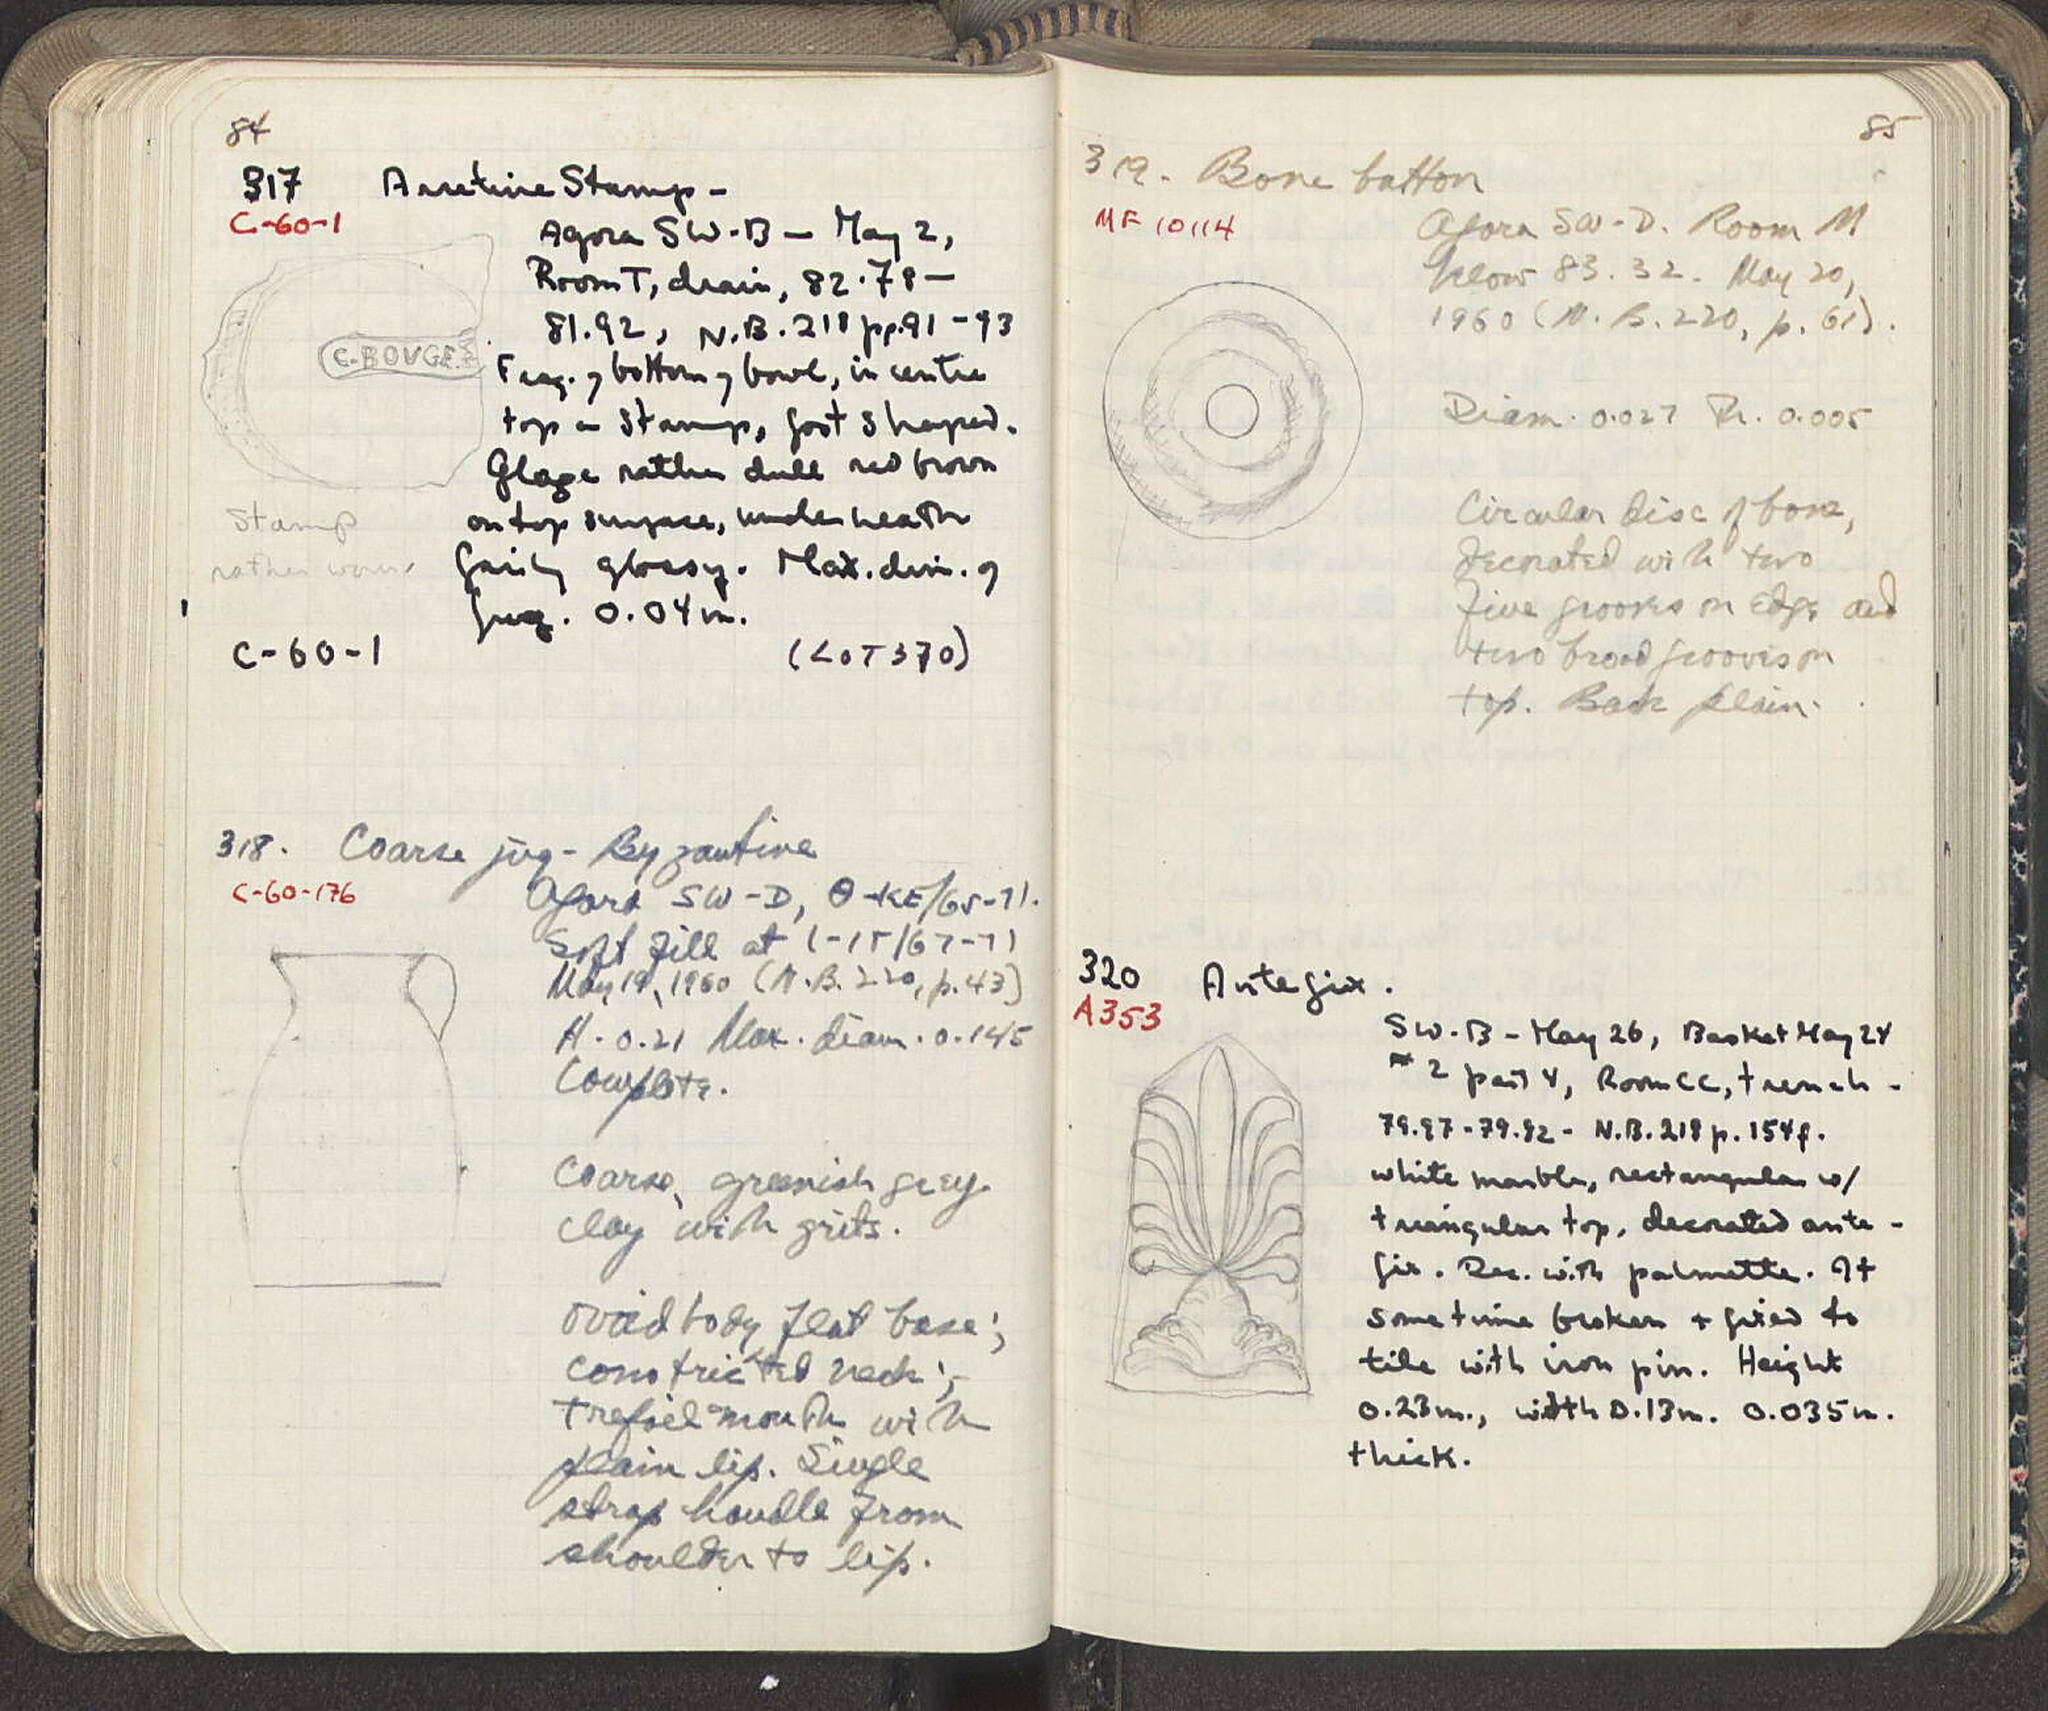 84
317 Arretine Stamp -
C-60-1
Agora SW-B - May 2,
Room T, drain, 82.78 -
81.92, N.B. 218 pp. 91 - 93
Frag. of bottom of bowl, in centre
top a stamp, foot shaped.
Glaze rather dull red brown
on top surface, underneath
fairly glossy. Max. dim. of
frag. 0.04 m.
C-BOUGE
Stamp
rather worn.
C-60-1 (LOT 370)
318. Coarse jug - Byzantine
C-60-176
Agora SW-D, Θ-KE/65-71.
Soft fill at 67-71
May 19, 1960 (N.B. 220, p. 43)
H. 0.21 Max. diam. 0.145
Complete.
Coarse, greenish grey
clay with grits.
Ovoid body flat base;
constricted neck;
trefoil mouth with
plain lip. Single
strap handle from
shoulder to lip.
85
319. Bone button
MF 10114
Agora SW-D. Room M
below 83.32. May 20,
1960 (N.B. 220, p. 61).
Diam. 0.027 Th. 0.005
Circular disc of bone,
decorated with two
fine grooves on edge and
two broad grooves on
top. Back plain.
320 Antefix.
A353
SW-B - May 26, Basket May 24
#2 part 4, Room CC, trench -
79.97-79.92 - N.B. 218 p. 154f.
white marble, rectangular w/
triangular top, decorated ante-
fix. Dec. with palmette. At
some time broken + fixed to
tile with iron pin. Height
0.23m., width 0.13m. 0.035m.
thick.